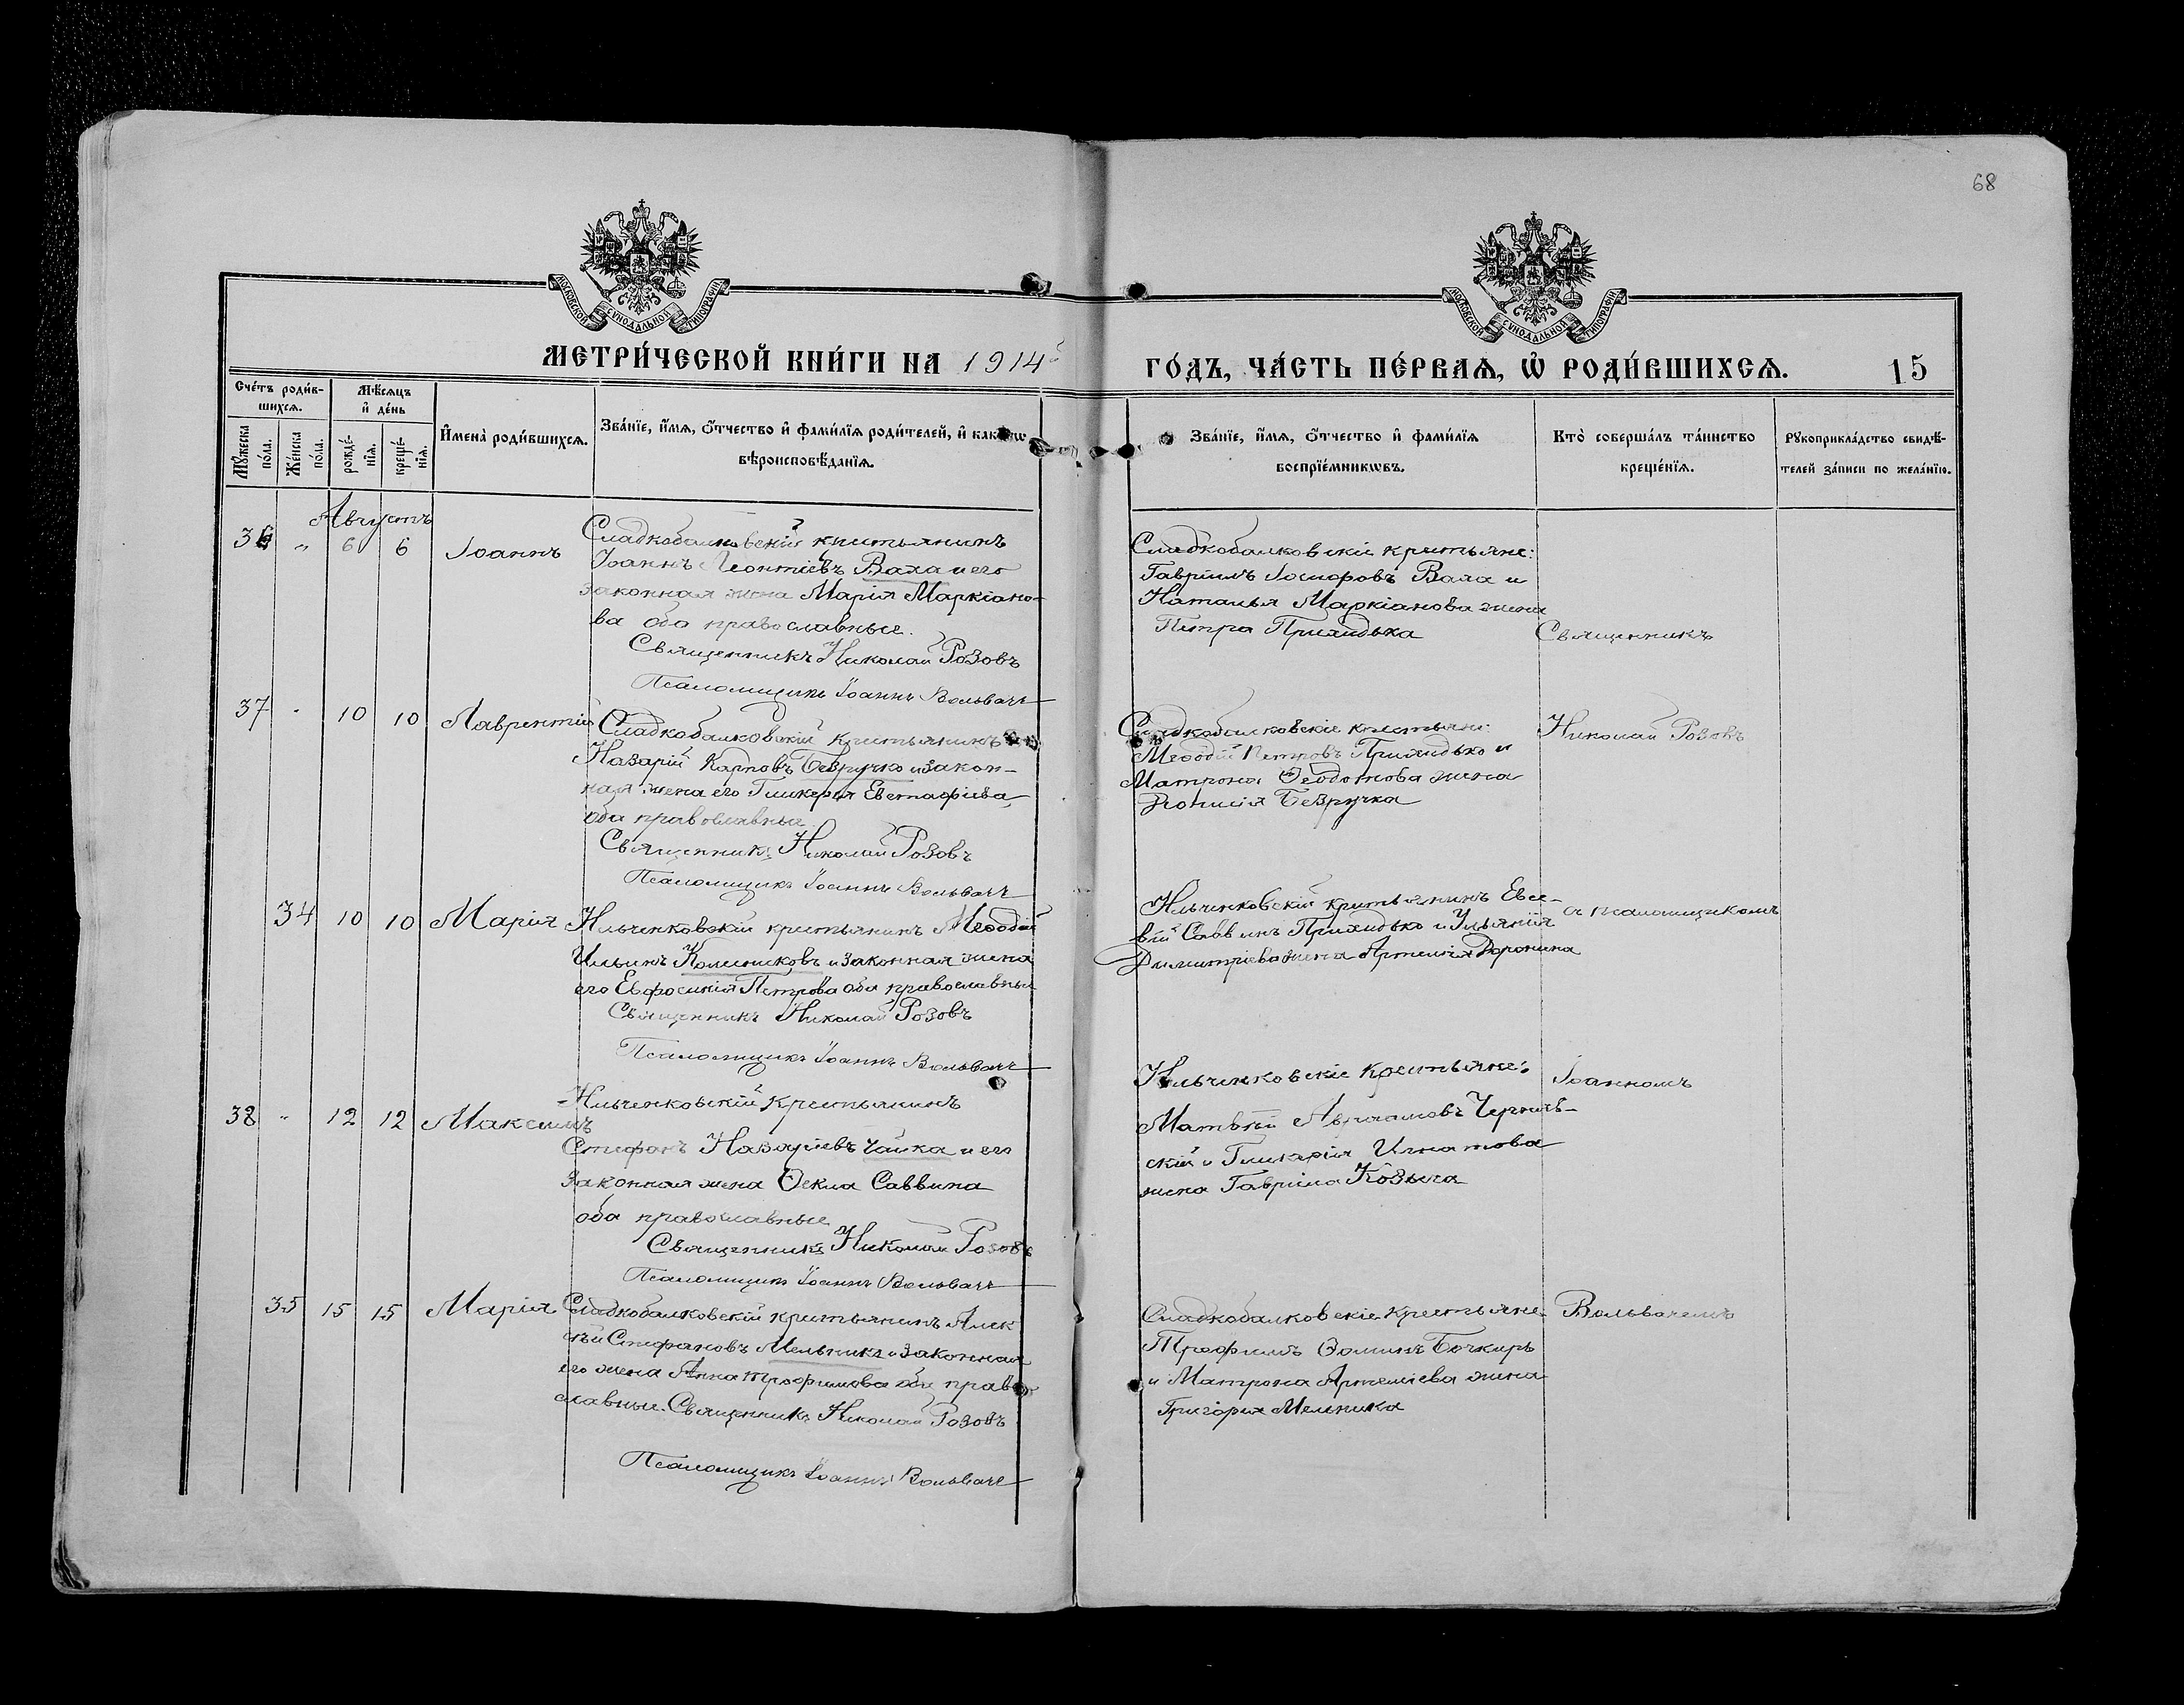 68
МОСКОВСКОЙ СѴНОДАЛЬНОЙ ТИПОГРАФІИ
МОСКОВСКОЙ СѴНОДАЛЬНОЙ ТИПОГРАФІИ
МЕТРИ́ЧЕСКОЙ КНИ́ГИ НА 1914й ГО́ДЪ, ЧА́СТЬ ПЕ́РВАѦ, Ѡ҆ РОДИ́ВШИХСѦ. 15
Сче́тъ роди́в-
шихсѧ.
Мꙋ́жеска по́ла.
Же́нска по́ла.
Мѣ́сѧцъ
и҆ де́нь
рожде́-
нїѧ.
креще́-
нїѧ.
И҆мена̀ роди́вшихсѧ.
Зва́нїе, и҆́мѧ, ѻ҆́тчество и҆ фами́лїѧ роди́телей, и҆ како́гѡ
вѣроисповѣ́данїѧ.
Зва́нїе, и҆́мѧ, ѻ҆́тчество и҆ фами́лїѧ
воспрїе́мникѡвъ.
Кто̀ соверша́лъ та́инство
креще́нїѧ.
Рꙋкоприкла́дство свидѣ́-
телей за́писи по жела́нїю.
Августъ
36 „ 6 6 Іоаннъ
Сладкобалковскій крестьянинъ
Іоаннъ Леонтіевъ Вала и его
законная жена Марія Маркіано-
ва оба православные.
Священникъ Николай Розовъ
Псаломщикъ Іоаннъ Вольвачъ
Сладкобалковскіе крестьяне:
Гавріилъ Іосифовъ Вала и
Наталья Маркіанова жена
Петра Приходька
Священникъ
37 „ 10 10 Лаврентій
Сладкобалковскій крестьянинъ
Назарій Карповъ Безручко и закон-
ная жена его Гликерія Евстафіева
оба православные.
Священникъ Николай Розовъ
Псаломщикъ Іоаннъ Вольвачъ
Сладкобалковскіе крестьяне:
Меѳодій Петровъ Приходько и
Матрона Ѳеодотова жена
Діонисія Безручка
Николай Розовъ
34 10 10 Марія
Ильченковскій крестьянинъ Меѳодій
Ильинъ Колесниковъ и законная жена
его Евфросинія Петрова оба православные
Священникъ Николай Розовъ
Псаломщикъ Іоаннъ Вольвачъ
Ильченковскій крестьянинъ Евсе-
вій Саввинъ Приходько и Ульянія
Димитріева жена Артемія Доронина
съ псаломщикомъ
38 „ 12 12 Максимъ
Ильченковскій крестьянинъ
Стефанъ Назаріевъ Чайка и его
законная жена Ѳекла Саввина
оба православные
Священникъ Николай Розовъ
Псаломщикъ Іоаннъ Вольвачъ
Ильченковскіе крестьяне:
Матвѣй Авраамовъ Черняв-
скій и Гликерія Игнатова
жена Гавріила Козыча
Іоанномъ
35 15 15 Марія
Сладкобалковскій крестьянинъ Алек-
сѣй Стефановъ Мельникъ и законная
его жена Анна Трофимова оба право-
славные. Священникъ Николай Розовъ
Псаломщикъ Іоаннъ Вольвачъ
Сладкобалковскіе крестьяне
Трофимъ Ѳоминъ Бочкаръ
и Матрона Артеміева жена
Григорія Мельника
Вольвачемъ